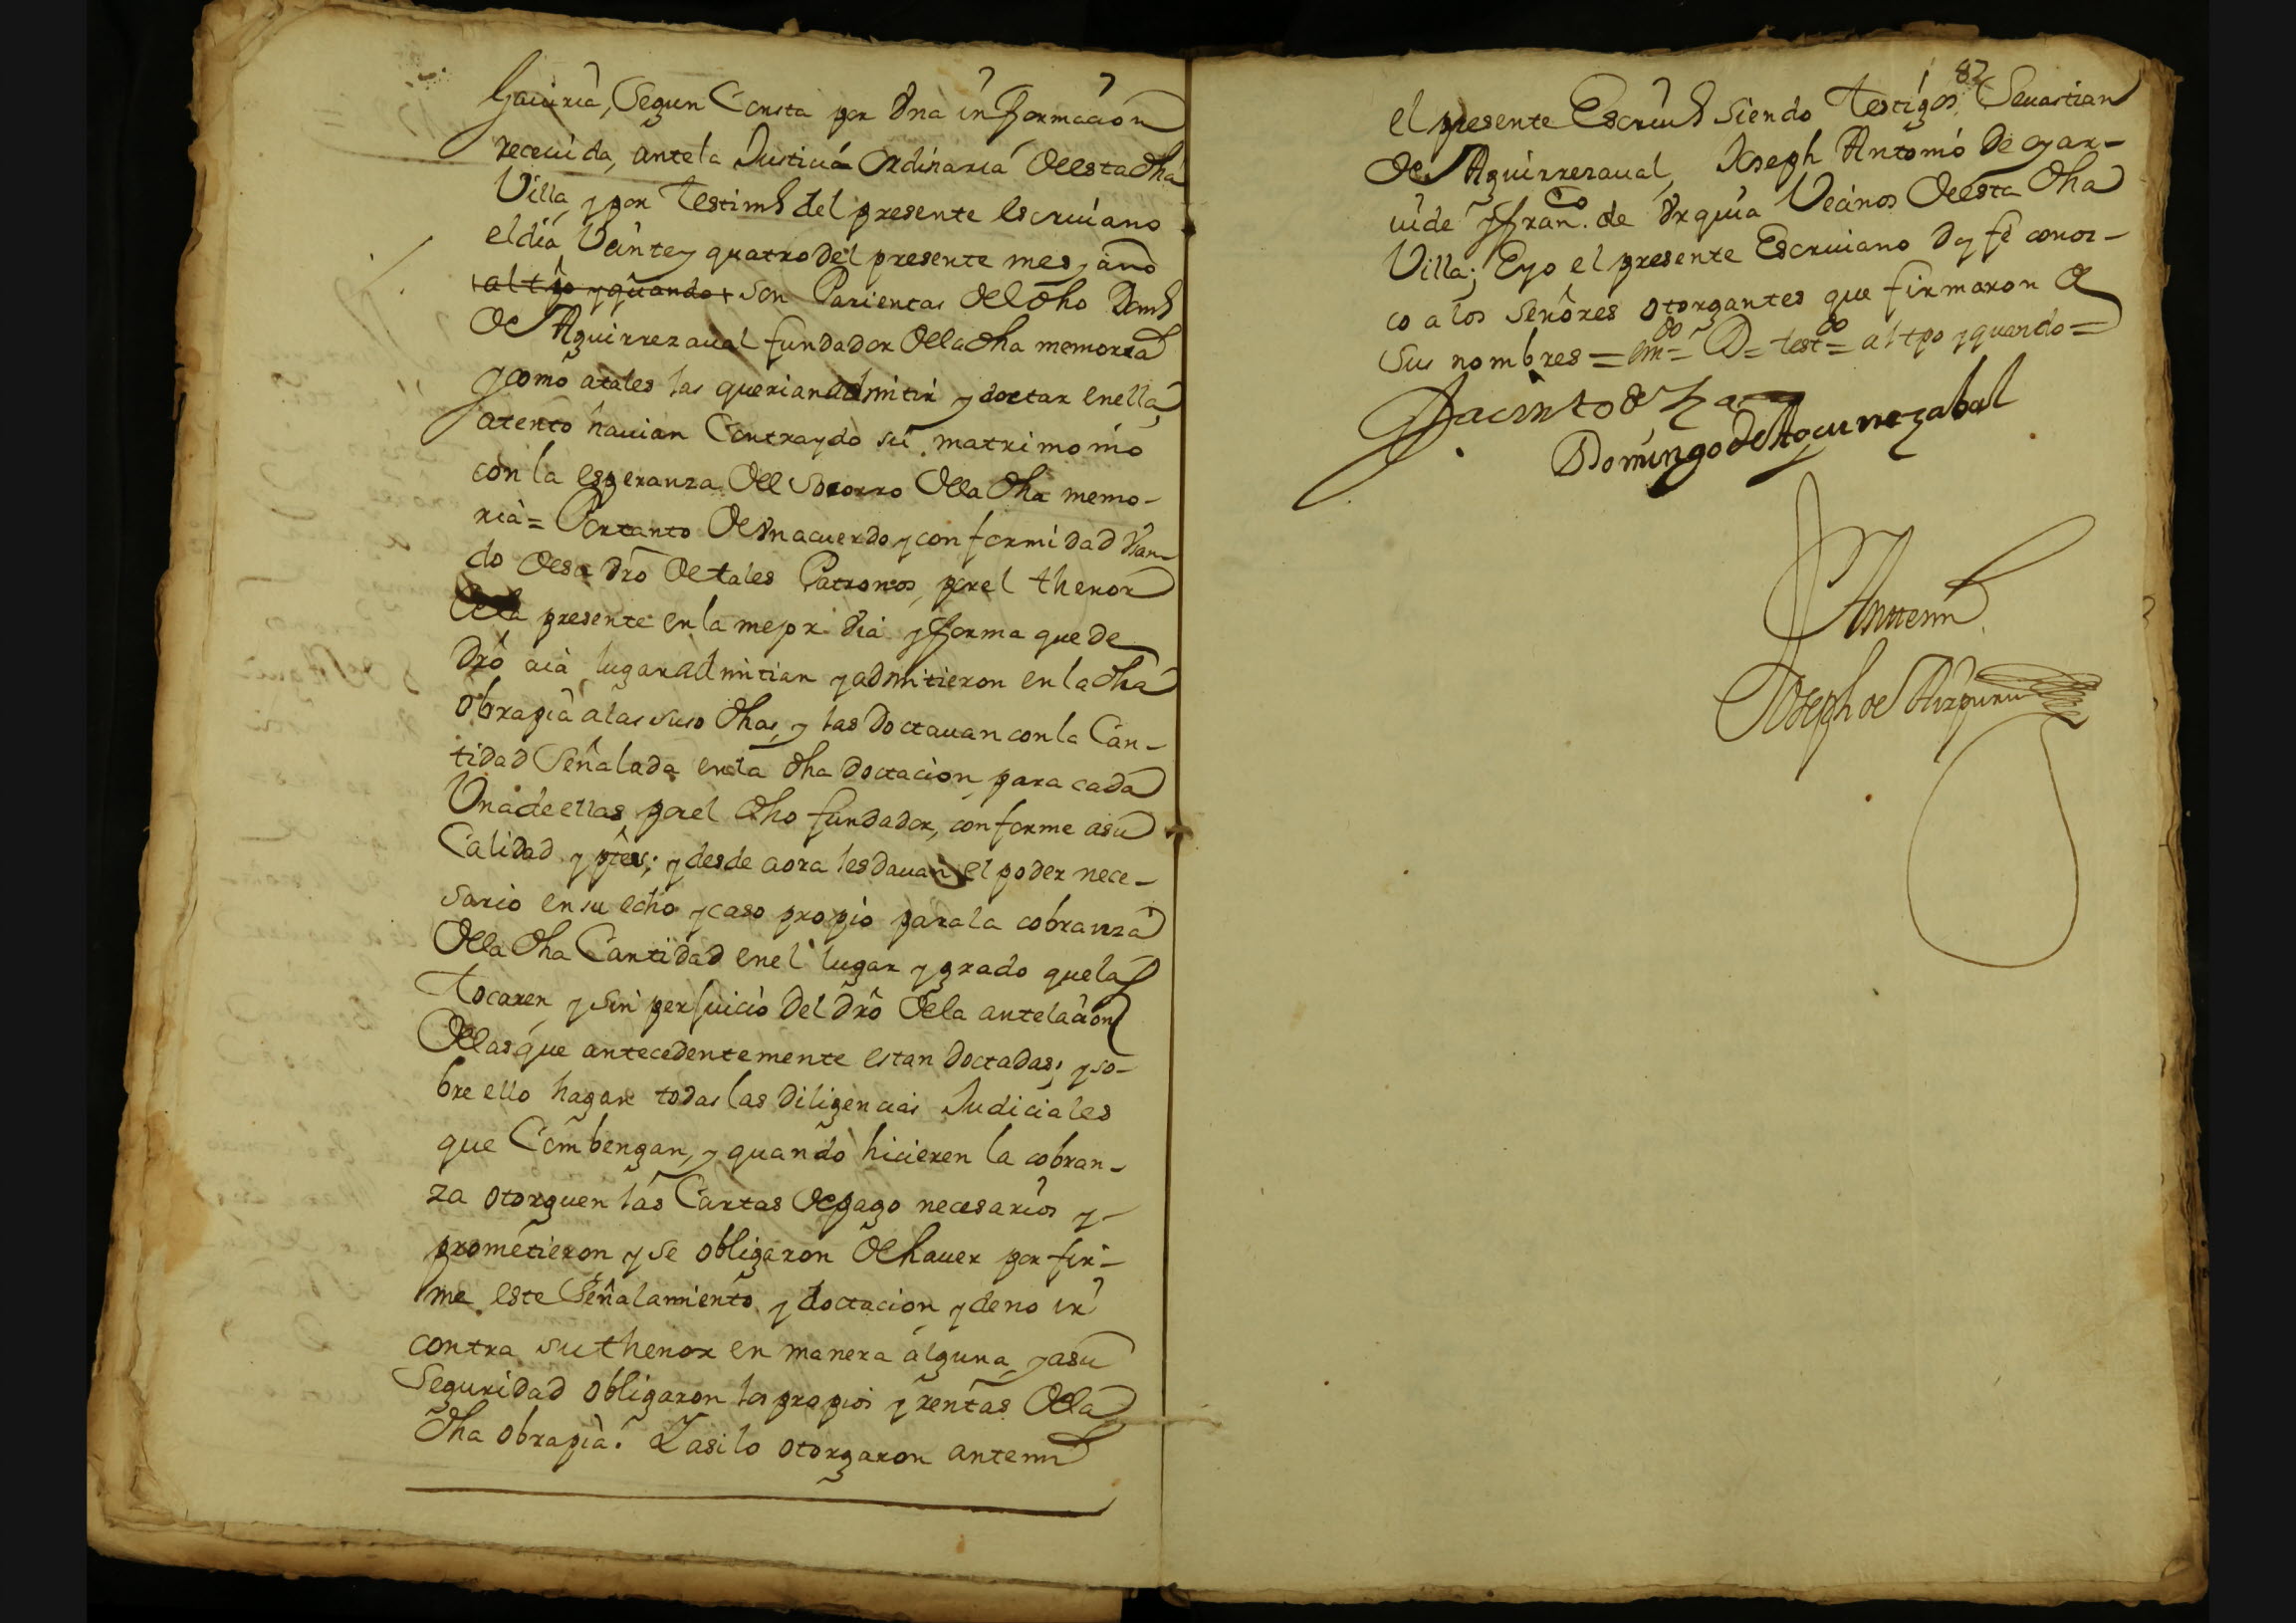 Gaiuria, Segun Consta por Vna informacion
receuida, ante la Justicia ordinaria de esta dha
Villa, y por Testimo del presente escriuano
el dia Veinte y quatro del presente mes y año
al tpo y quando son Parientas del dho Domo
de Aguirrezaual fundador de la dha memoria
y como atales las querian admitir y doctar en ella
atento hauian Contraydo su matrimonio
con la esperanza del Socorro de la dha memo-
ria = Portanto de Vn acuerdo y conformidad Vsan-
do de sa dro de tales Patronos, por el thenor
de la presente en la mejor via y forma que de
dro aia lugar admitian y admitieron en la dha
obrapia a las suso dhas, y las doctauan con la Can-
tidad Señalada en la dha doctacion para cada
Vna de ellas por el dho fundador, conforme a su
Calidad y ptes; y desde aora les dauan el poder nece-
sario en su echo y caso propio para la cobranza
de la dha Cantidad en el lugar y grado que las
tocaren y sin perjuicio del dro de la antelacion
de las que antecedentemente estan doctadas; y so-
bre ello hagan todas las diligencias Judiciales
que Combengan, y quando hicieren la cobran-
za otorguen las Cartas de pago necesarios y-
prometieron y se obligaron de hauer por fir-
me este Señalamiento y doctacion y de no ir
contra su thenor en manera alguna, y a su
Seguridad obligaron los propios y rentas de la
dha obrapia. Y asi lo otorgaron antemi
82
el presente Escriuo siendo Testigos Seuastian
de Aguirrezaual, Joseph Antonio de oyar-
uide y Franco de Vrquia Vecinos de esta dha
Villa; E yo el presente Escriuano doy fe conoz-
co a los Señores otorgantes que firmaron de
sus nombres = emdo = D = testdo = al tpo y quando =
Jacinto de
Domingo de Aguirrezabal
Antemi
Joseph de Aizpuru